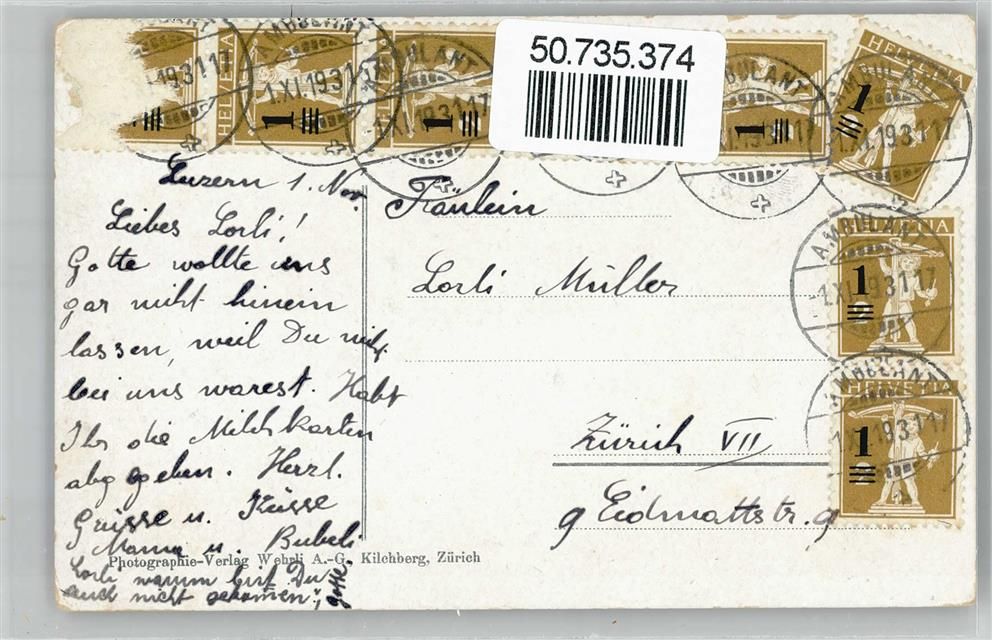 50.735.374
HELVETIA
AMBULANT
1.XI.1931 17
1
Luzern 1. Nov.
Liebes Lorli!
Gotte wollte uns
gar nicht hinein
lassen, weil Du nicht
bei uns warest. Habt
Ihr die Milchkarten
abgegeben. Herzl.
Grüsse u. Küsse
Mama u. Bubeli
Lorli warum bist Du
auch nicht gekommen", Gotte.
Photographie-Verlag Wehrli A.-G. Kilchberg, Zürich
Fräulein
Lorli Müller
Zürich VII
9 Eidmattstr. 9
AMBULANT
-1.XI.1931 17
HELVETIA
1
HELVETIA
1